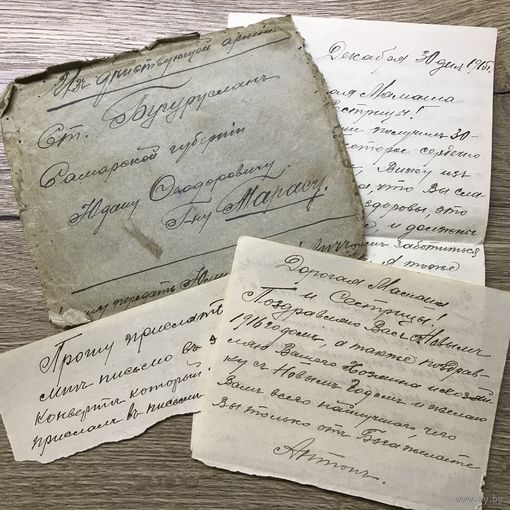 Изъ действующей армии
Ст. Бугурусланъ
Самарской губерніи
Юдану Ѳеодоровичу
Г-ну Марасу.
передать
Декабря 30 дня 1915 г.
Мамаша
Сестрицы!
получилъ 30-
которое сердечно
Вижу изъ
что Вы сла
здоровы, это
и должны
заботиться
А тоже
Прошу прислать
мнѣ письмо въ
конвертѣ который
прислалъ въ письмѣ
Дорогая Мамаша
и Сестрицы!
Поздравляю Васъ Новымъ
1916 годомъ, а также поздрав-
ляю Вашего Хозяина и хозяй
ку съ Новымъ Годомъ и желаю
Вамъ всего наилучшаго, чего
Вы только отъ Бога желаете
Антонъ.
ay.by